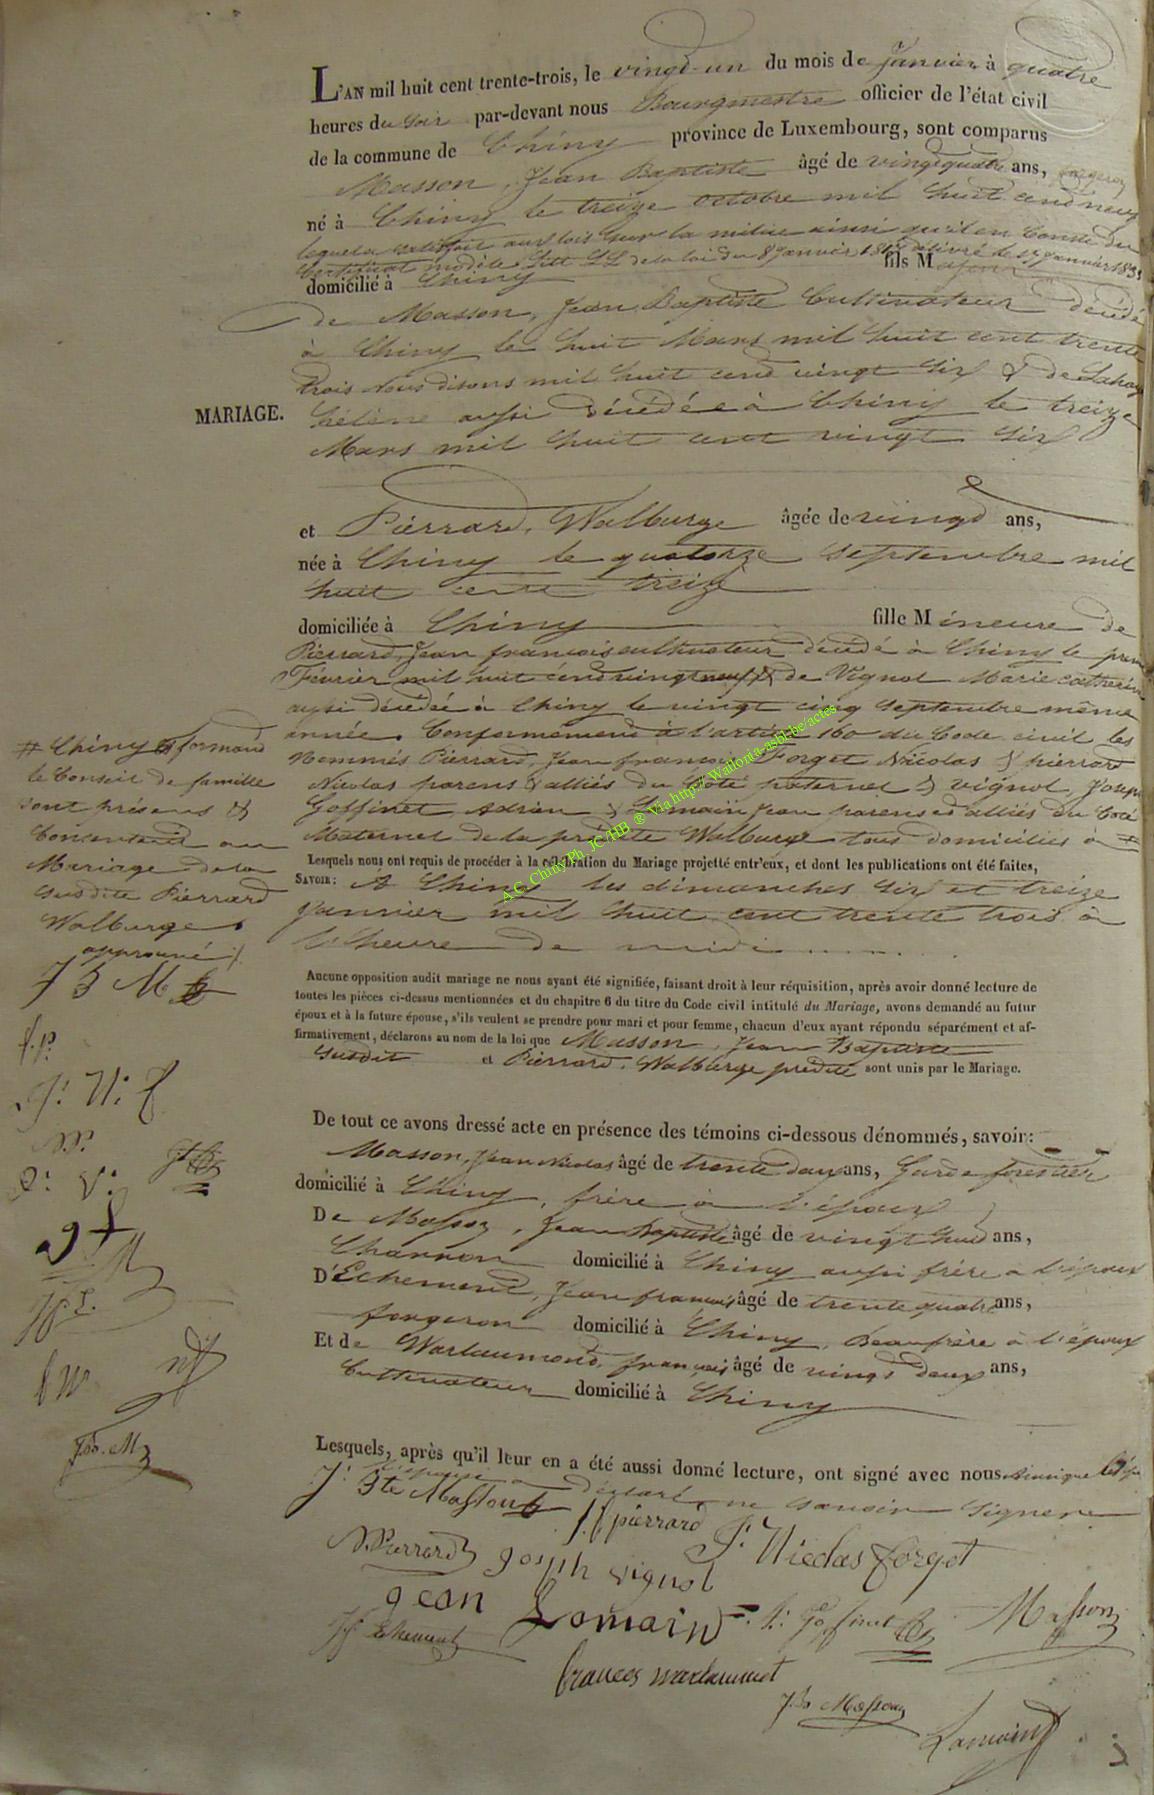 L'AN mil huit cent trente-trois, le vingt-un du mois de Janvier à quatre
heures du soir par-devant nous Bourgmestre officier de l'état civil
de la commune de Chiny province de Luxembourg, sont comparus
Masson, Jean Baptiste âgé de vingt quatre ans, forgeron
né à Chiny le treize octobre mil huit cent neuf
lequel a satisfait aux lois sur la milice ainsi qu'il en conste du
Certificat modèle Litt LL de la loi du 8 janvier 1817 délivré le 17 janvier 1833
domicilié à Chiny fils Majeur
de Masson, Jean Baptiste Cultivateur décédé
à Chiny le huit Mars mil huit cent trente
trois nous disons mil huit cent vingt six & de Lahaye
MARIAGE.
hélène aussi décédée à Chiny le treize
Mars mil huit cent vingt six
et Piérrard, Walburge âgée de vingt ans,
née à Chiny le quatorze septembre mil
huit cent treize
domiciliée à Chiny fille Mineure de
Pierrard, Jean françois cultivateur décédé à Chiny le premier
Février mil huit cent vingt neuf & de Vignol Marie catherine
aussi décédée à Chiny le vingt cinq septembre même
année. Conformement à l'article 160 du Code civil les
Nommés Pierrard, Jean françois Forget Nicolas & pierrard
Nicolas parens & alliés du Coté paternel & vignol, Joseph
Goffinet, Adrien & Lemain Jean parens et alliés du Coté
Maternel de la prédite Walburge tous domiciliés à #
# Chiny & formant
le Conseil de famille
sont présens &
Consentent au
Mariage de la
susdite Pierrard
Walburge
approuvé
J B M
f.p.
J: N: f
N.P.
J: V:
J L
f W
J.B. M
Lesquels nous ont requis de procéder à la célébration du Mariage projetté entr'eux, et dont les publications ont été faites,
SAVOIR: A Chiny les dimanches six et treize
janvier mil huit cent trente trois à
l'heure de midi
Aucune opposition audit mariage ne nous ayant été signifiée, faisant droit à leur réquisition, après avoir donné lecture de
toutes les pièces ci-dessus mentionnées et du chapitre 6 du titre du Code civil intitulé du Mariage, avons demandé au futur
époux et à la future épouse, s'ils veulent se prendre pour mari et pour femme, chacun d'eux ayant répondu séparément et af-
firmativement, déclarons au nom de la loi que Masson, Jean Baptiste
susdit et Piérrard, Walburge predite sont unis par le Mariage.
De tout ce avons dressé acte en présence des témoins ci-dessous dénommés, savoir:
Masson, Jean Nicolas âgé de trente deux ans, Garde forestier
domicilié à Chiny, frère à l'époux
De Masson, Jean Baptiste âgé de vingt huit ans,
Charron domicilié à Chiny aussi frère à l'époux
D'Echement, Jean françois âgé de trente quatre ans,
forgeron domicilié à Chiny, Beaufrère à l'époux
Et de Warlaumond, françois âgé de vingt deux ans,
Cultivateur domicilié à Chiny
Lesquels, après qu'il leur en a été aussi donné lecture, ont signé avec nous
déclaré ne savoir signer
J: Bte Masson
J f pierrard
N. Pierrard
J: Nicolas forget
Joseph vignol
Jean Lomain
Goffinet
Masson
Jf Echement
francois warlaumont
J.B Masson
Lamain
A.C. Chiny Ph JC/HB ® Via http://Wallonia-asbl.be/actes